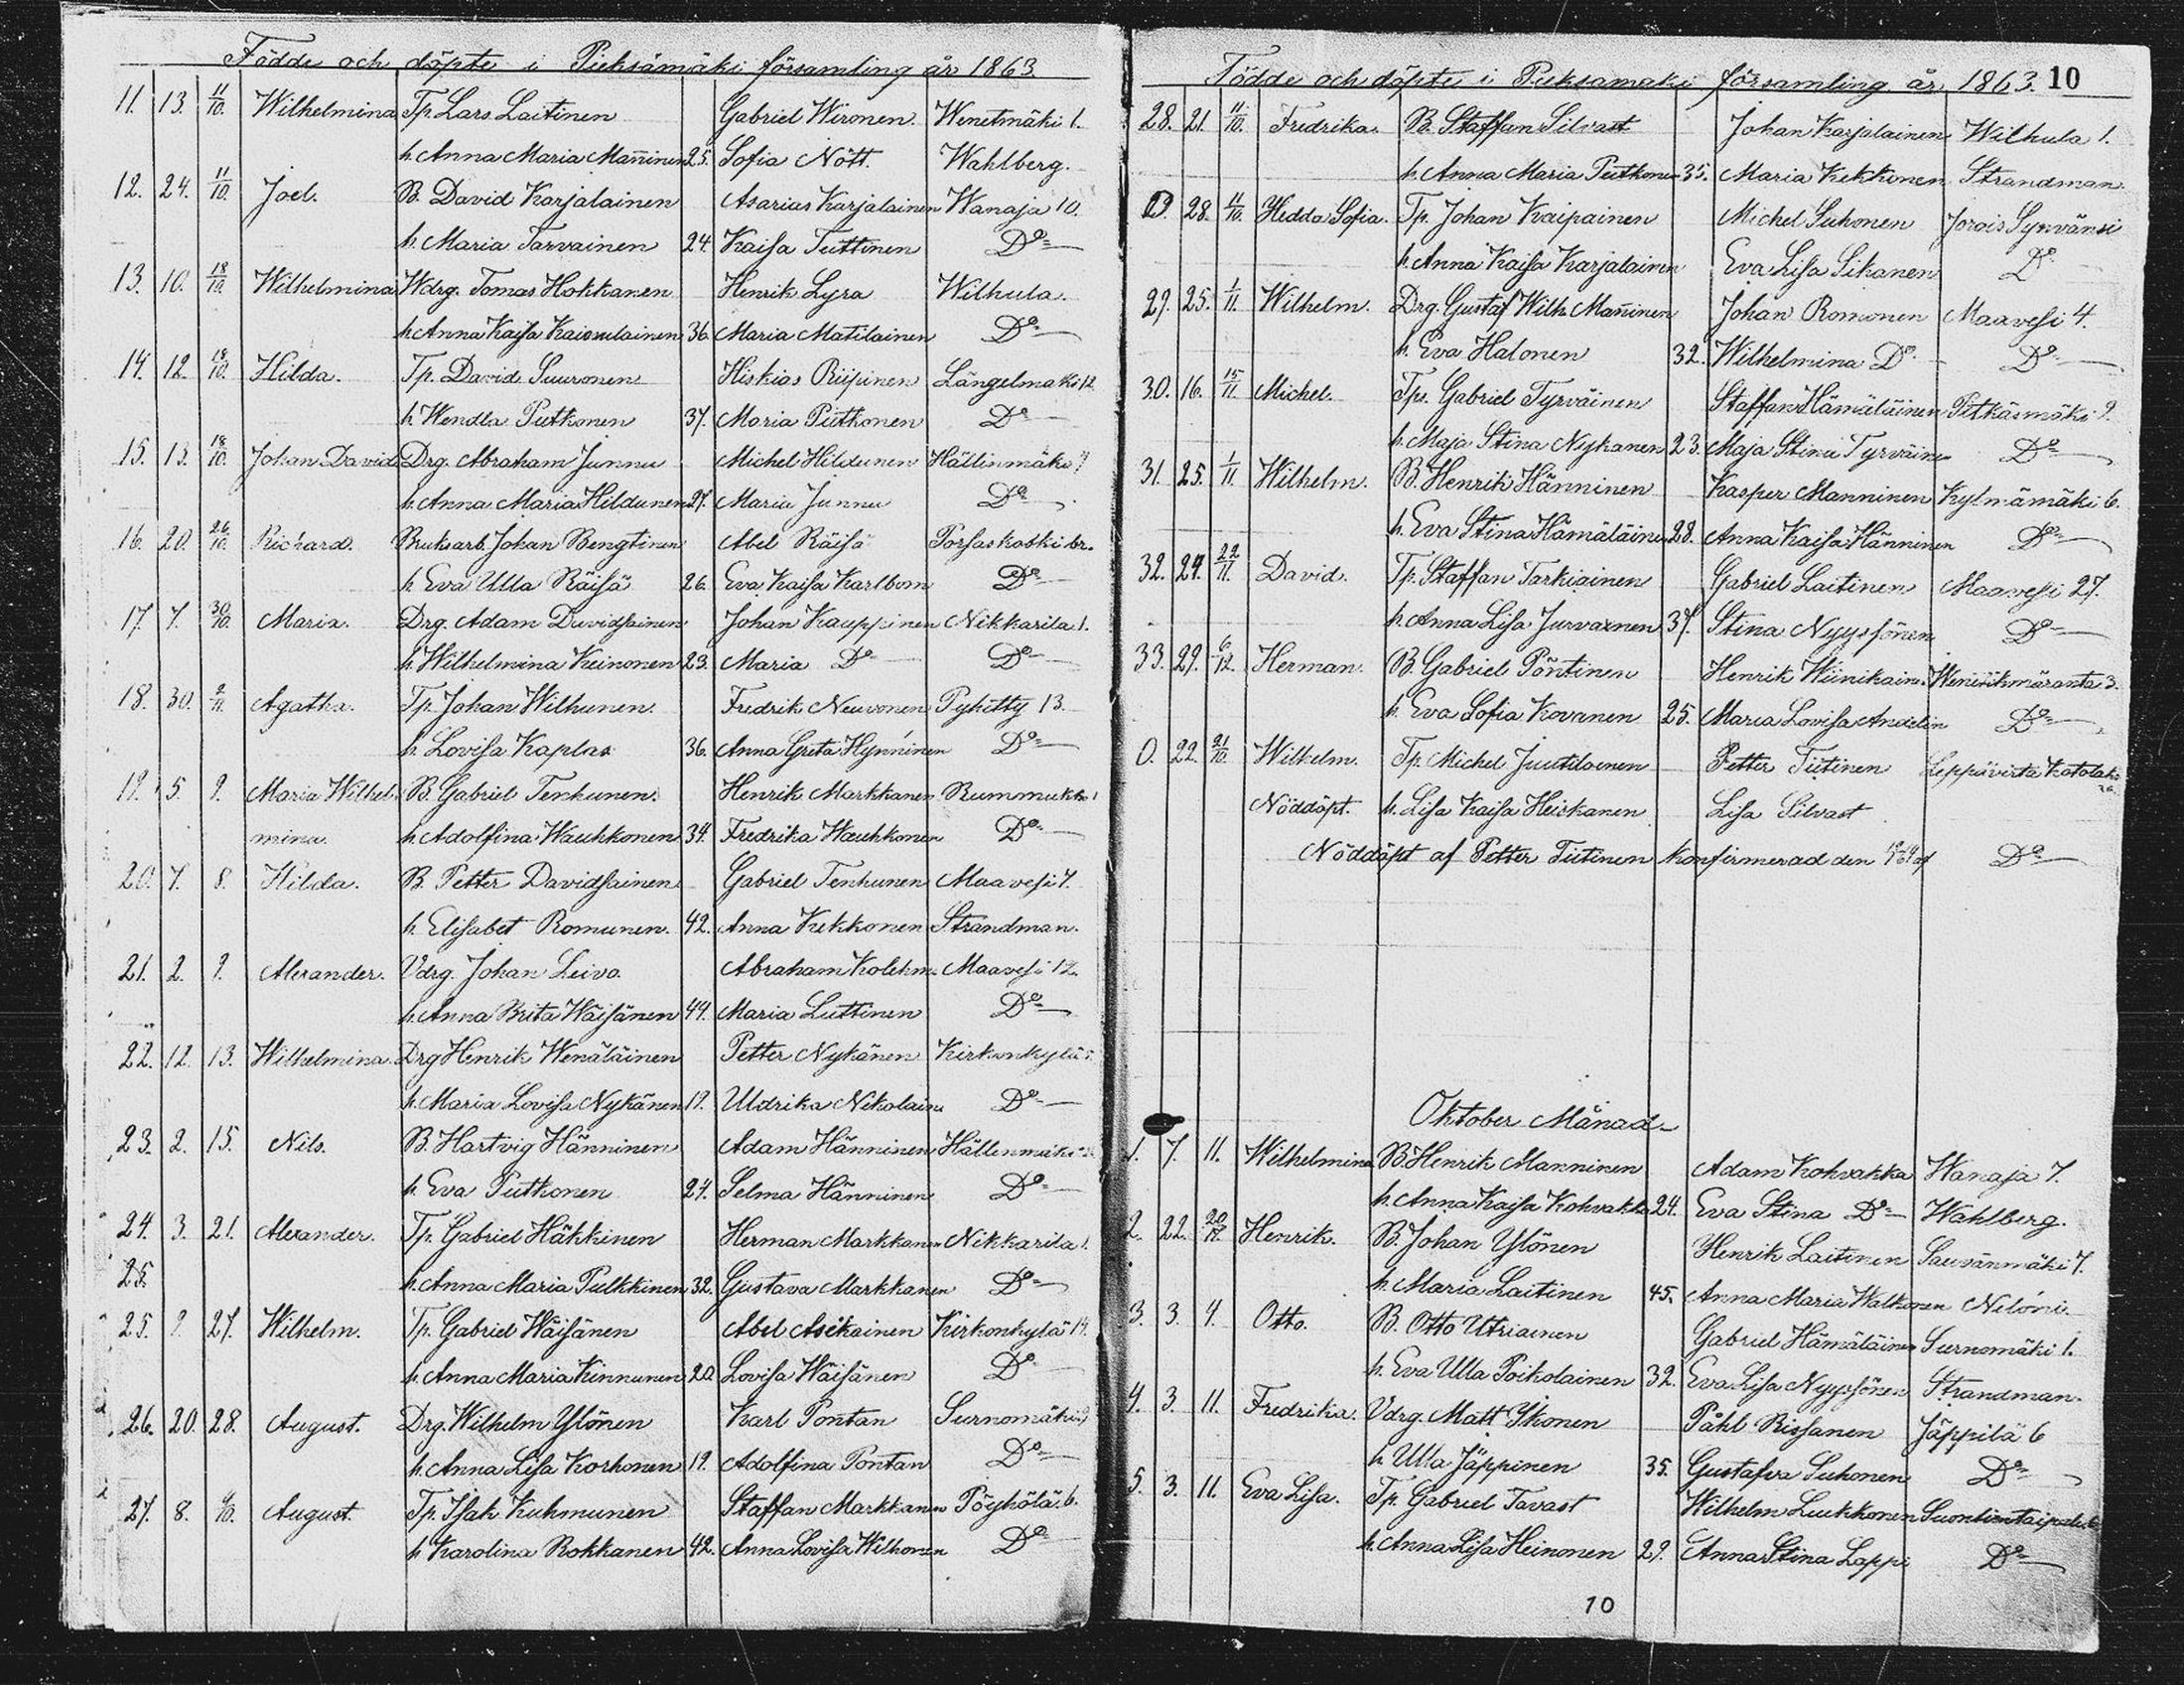 Födde och döpte i Pieksämäki församling år 1863
11. 13. 11/10. Wilhelmina Tp. Lars Laitinen Gabriel Wironen. Wenetmäki 1.
h. Anna Maria Mañinen 25. Sofia Nött. Wahlberg.
12. 24. 11/10. Joel. B. David Karjalainen Asarias Karjalainen Wanaja 10.
h. Maria Tarvainen 24. Kaisa Teittinen Do
13. 10. 18/10. Wilhelmina Wdrg. Tomas Hokkanen Henrik Lyra Wilhula.
h. Anna Kaisa Kaisvulainen 36. Maria Matilainen Do
14. 12. 18/10. Hilda. Tp. David Suuronen Hiskias Riipinen Längelmäki 12
h. Wendla Putkonen 37. Maria Putkonen Do
15. 13. 18/10. Johan David Drg. Abraham Junnu Michel Hildunen Hällinmäki 7
h. Anna Maria Hildunen 27. Maria Junnu Do
16. 20. 26/10. Richard. Bruksarb. Johan Bengtinen Abel Räisä Porsaskoski br.
h. Eva Ulla Räisä 26. Eva Kaisa Karlbom Do
17. 7. 30/10. Maria. Drg. Adam Davidsainen Johan Kauppinen Nikkarila 1.
h. Wilhelmina Keinonen 23. Maria Do Do
18. 30. 9/11. Agatha. Tp. Johan Wilhunen. Fredrik Neuvonen Pyhitty 13.
h. Lovisa Kaplas 36. Anna Greta Hynninen Do
19. 5. 9. Maria Wilhel- B. Gabriel Tenhunen. Henrik Markkanen Rummukka 1
mina. h. Adolfina Wauhkonen 34. Fredrika Wauhkonen Do
20. 7. 8. Hilda. B. Petter Davidsainen Gabriel Tenhunen Maavesi 7.
h. Elisabet Romunen. 42. Anna Kekkonen Strandman.
21. 2. 9. Alexander. Vdrg. Johan Leivo. Abraham Kolehm. Maavesi 12.
h. Anna Brita Wäisänen 44. Maria Luttinen Do
22. 12. 13. Wilhelmina. Drg Henrik Wenäläinen Petter Nykänen Kirkonkylä
h. Maria Lovisa Nykänen 19. Uldrika Nikolain. Do
23. 2. 15. Nils. B. Hartvig Hänninen Adam Hänninen Hällenmäki
h. Eva Putkonen 27. Selma Hänninen Do
24. 3. 21. Alexander. Tp. Gabriel Häkkinen Herman Markkanen Nikkarila 1.
25. h. Anna Maria Pulkkinen 32. Gustava Markkanen Do
25. 9. 27. Wilhelm. Tp. Gabriel Wäisänen Abel Asikainen Kirkonkylä 14.
h. Anna Maria Kinnunen 20. Lovisa Wäisänen Do
26. 20. 28. August. Drg. Wilhelm Ylönen Karl Pontan Surnomäki 9
h. Anna Lisa Korhonen 19. Adolfina Pontan Do
27. 8. 4/10. August. Tp. Isak Kuhmunen Staffan Markkanen Pöyhölä 6.
h. Karolina Rokkanen 42. Anna Lovisa Wilhonen Do
Födde och döpte i Pieksamaki församling år 1863. 10
28. 21. 11/10. Fredrika. B. Staffan Silvast Johan Karjalainen Wilhula 1.
h. Anna Maria Putkonen 35. Maria Kekkonen Strandman.
28. 4/10. Hedda Sofia. Tp. Johan Kaipainen Michel Suhonen Jorois Synvänsi
h. Anna Kaisa Karjalainen Eva Lisa Sikanen Do
29. 25. 1/11. Wilhelm. Drg. Gustaf Wilh. Mañinen Johan Romonen Maavesi 4.
h. Eva Halonen 32. Wilhelmina Do Do
30. 16. 15/11. Michel. Tp. Gabriel Tyrväinen Staffan Hämäläinen Pitkäsmäki 9.
h. Maja Stina Nykanen 23. Maja Stina Tyrväinen Do
31. 25. 1/11. Wilhelm. B. Henrik Hänninen Kasper Manninen Kylmämäki 6.
h. Eva Stina Hämäläinen 28. Anna Kaisa Hänninen Do
32. 27. 22/11. David. Tp. Staffan Tarkiainen Gabriel Laitinen Maavesi 27.
h. Anna Lisa Jurvanen 37. Stina Nyyssönen Do
33. 29. 6/12. Herman. B. Gabriel Pöntinen Henrik Wiinikain. Wenäikmäranta 3.
h. Eva Sofia Kovanen 25. Maria Lovisa Andelin Do
0. 22. 21/10. Wilhelm. Tp. Michel Juutilainen Petter Tiitinen Leppävirta Kotolaks
Nöddöpt. h. Lisa Kaisa Heiskanen Lisa Silvast
Nöddöpt af Petter Tiitinen konfirmerad den Do
Oktober Månad
1. 7. 11. Wilhelmina B. Henrik Manninen Adam Kohvakka Wanaja 7.
h. Anna Kaisa Kohvakka 24. Eva Stina Do Wahlberg.
2. 22. Henrik. B. Johan Ylönen Henrik Laitinen Sausänmäki 7.
h. Maria Laitinen 45. Anna Maria Walkonen Nelóni.
3. 3. 4. Otto. B. Otto Utriainen Gabriel Hämäläinen Surnomäki 1.
h. Eva Ulla Poikolainen 32. Eva Lisa Nyyssönen Strandman.
4. 3. 11. Fredrika. Vdrg. Matt Ikonen Påhl Rissanen Jäppilä 6
h Ulla Jäppinen 35. Gustafva Suhonen Do
5. 3. 11. Eva Lisa. Tp. Gabriel Tavast Wilhelm Luukkonen Suontientaipale
h. Anna Lisa Heinonen 29. Anna Stina Lappi Do
10